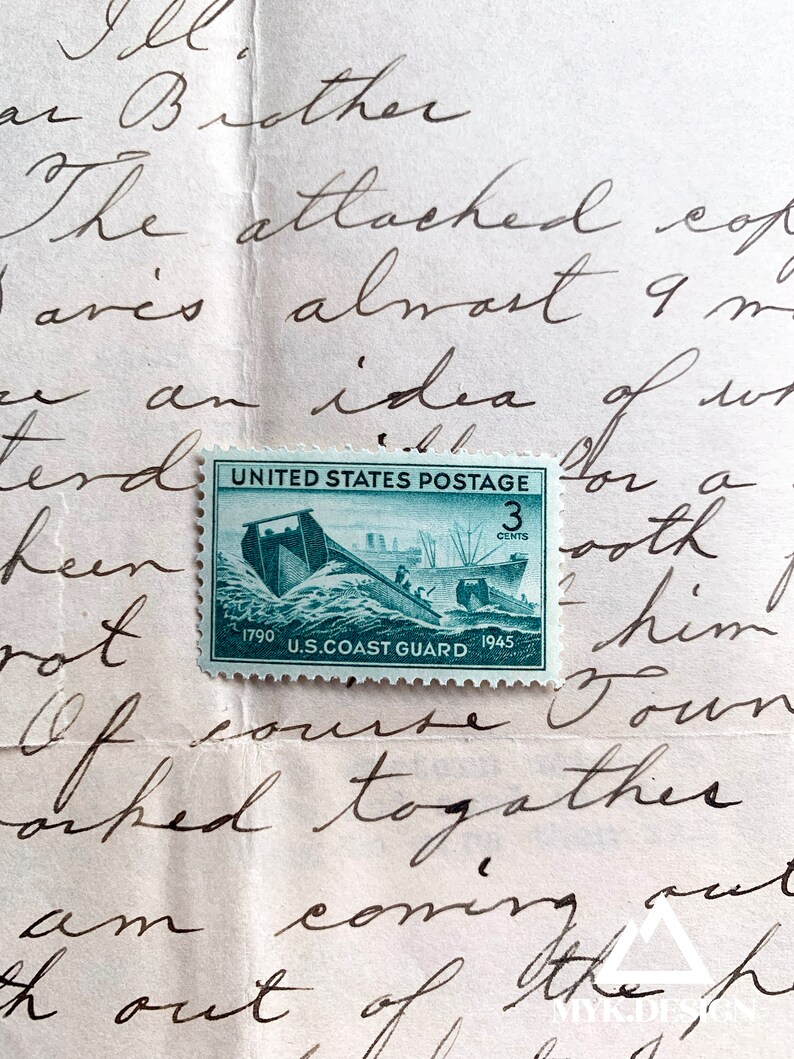 Ill.
ar Brother
The attached cop
Davis almost 9 m
an idea of wh
tend for a
heen ooth
not him
Of course Town
orked togather
am coming out
th out of the pe
UNITED STATES POSTAGE
3
CENTS
1790 U.S. COAST GUARD 1945
MYK.DESIGN